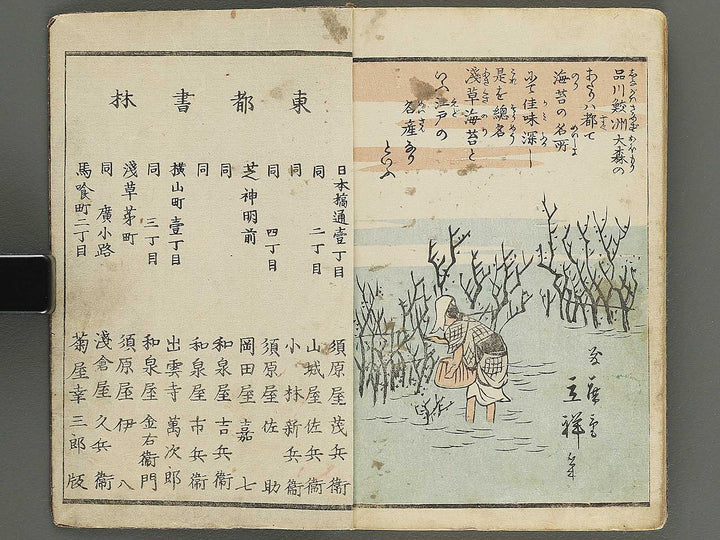 品川鮫洲大森の
あたり八都て
海苔の名所
にて佳味深し
是を總名
淺草海苔と
いふ江戸の
名産なり
といふ
立祥筆
東都書林
日本橋通壹丁目 須原屋茂兵衞
同 二丁目 山城屋佐兵衞
同 小林新兵衞
同 四丁目 須原屋佐助
芝神明前 岡田屋嘉七
同 和泉屋吉兵衞
同 和泉屋市兵衞
横山町壹丁目 出雲寺萬次郎
同 三丁目 和泉屋金右衞門
淺草茅町 須原屋伊八
同 廣小路 淺倉屋久兵衞
馬喰町二丁目 菊屋幸三郎版